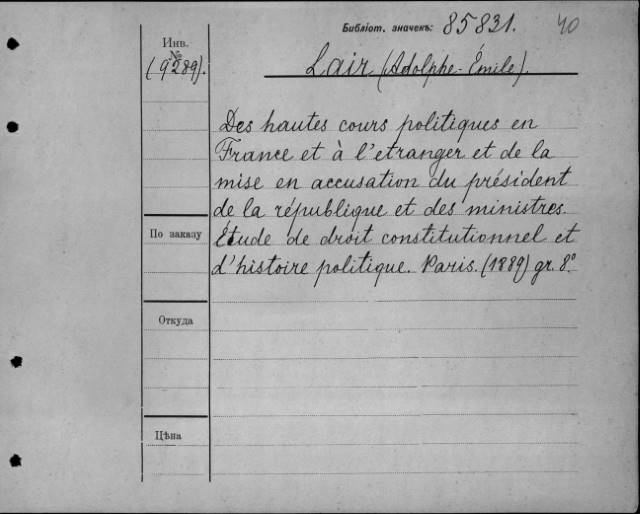 Библіот. значекъ: 85831. 40
Инв.
№
(9289).
Lair (Adolphe-Émile).
Des hautes cours politiques en
France et à l'etranger et de la
mise en accusation du président
de la république et des ministres.
Étude de droit constitutionnel et
d'histoire politique. Paris. (1889) gr. 8º
По заказу
Откуда
Цѣна